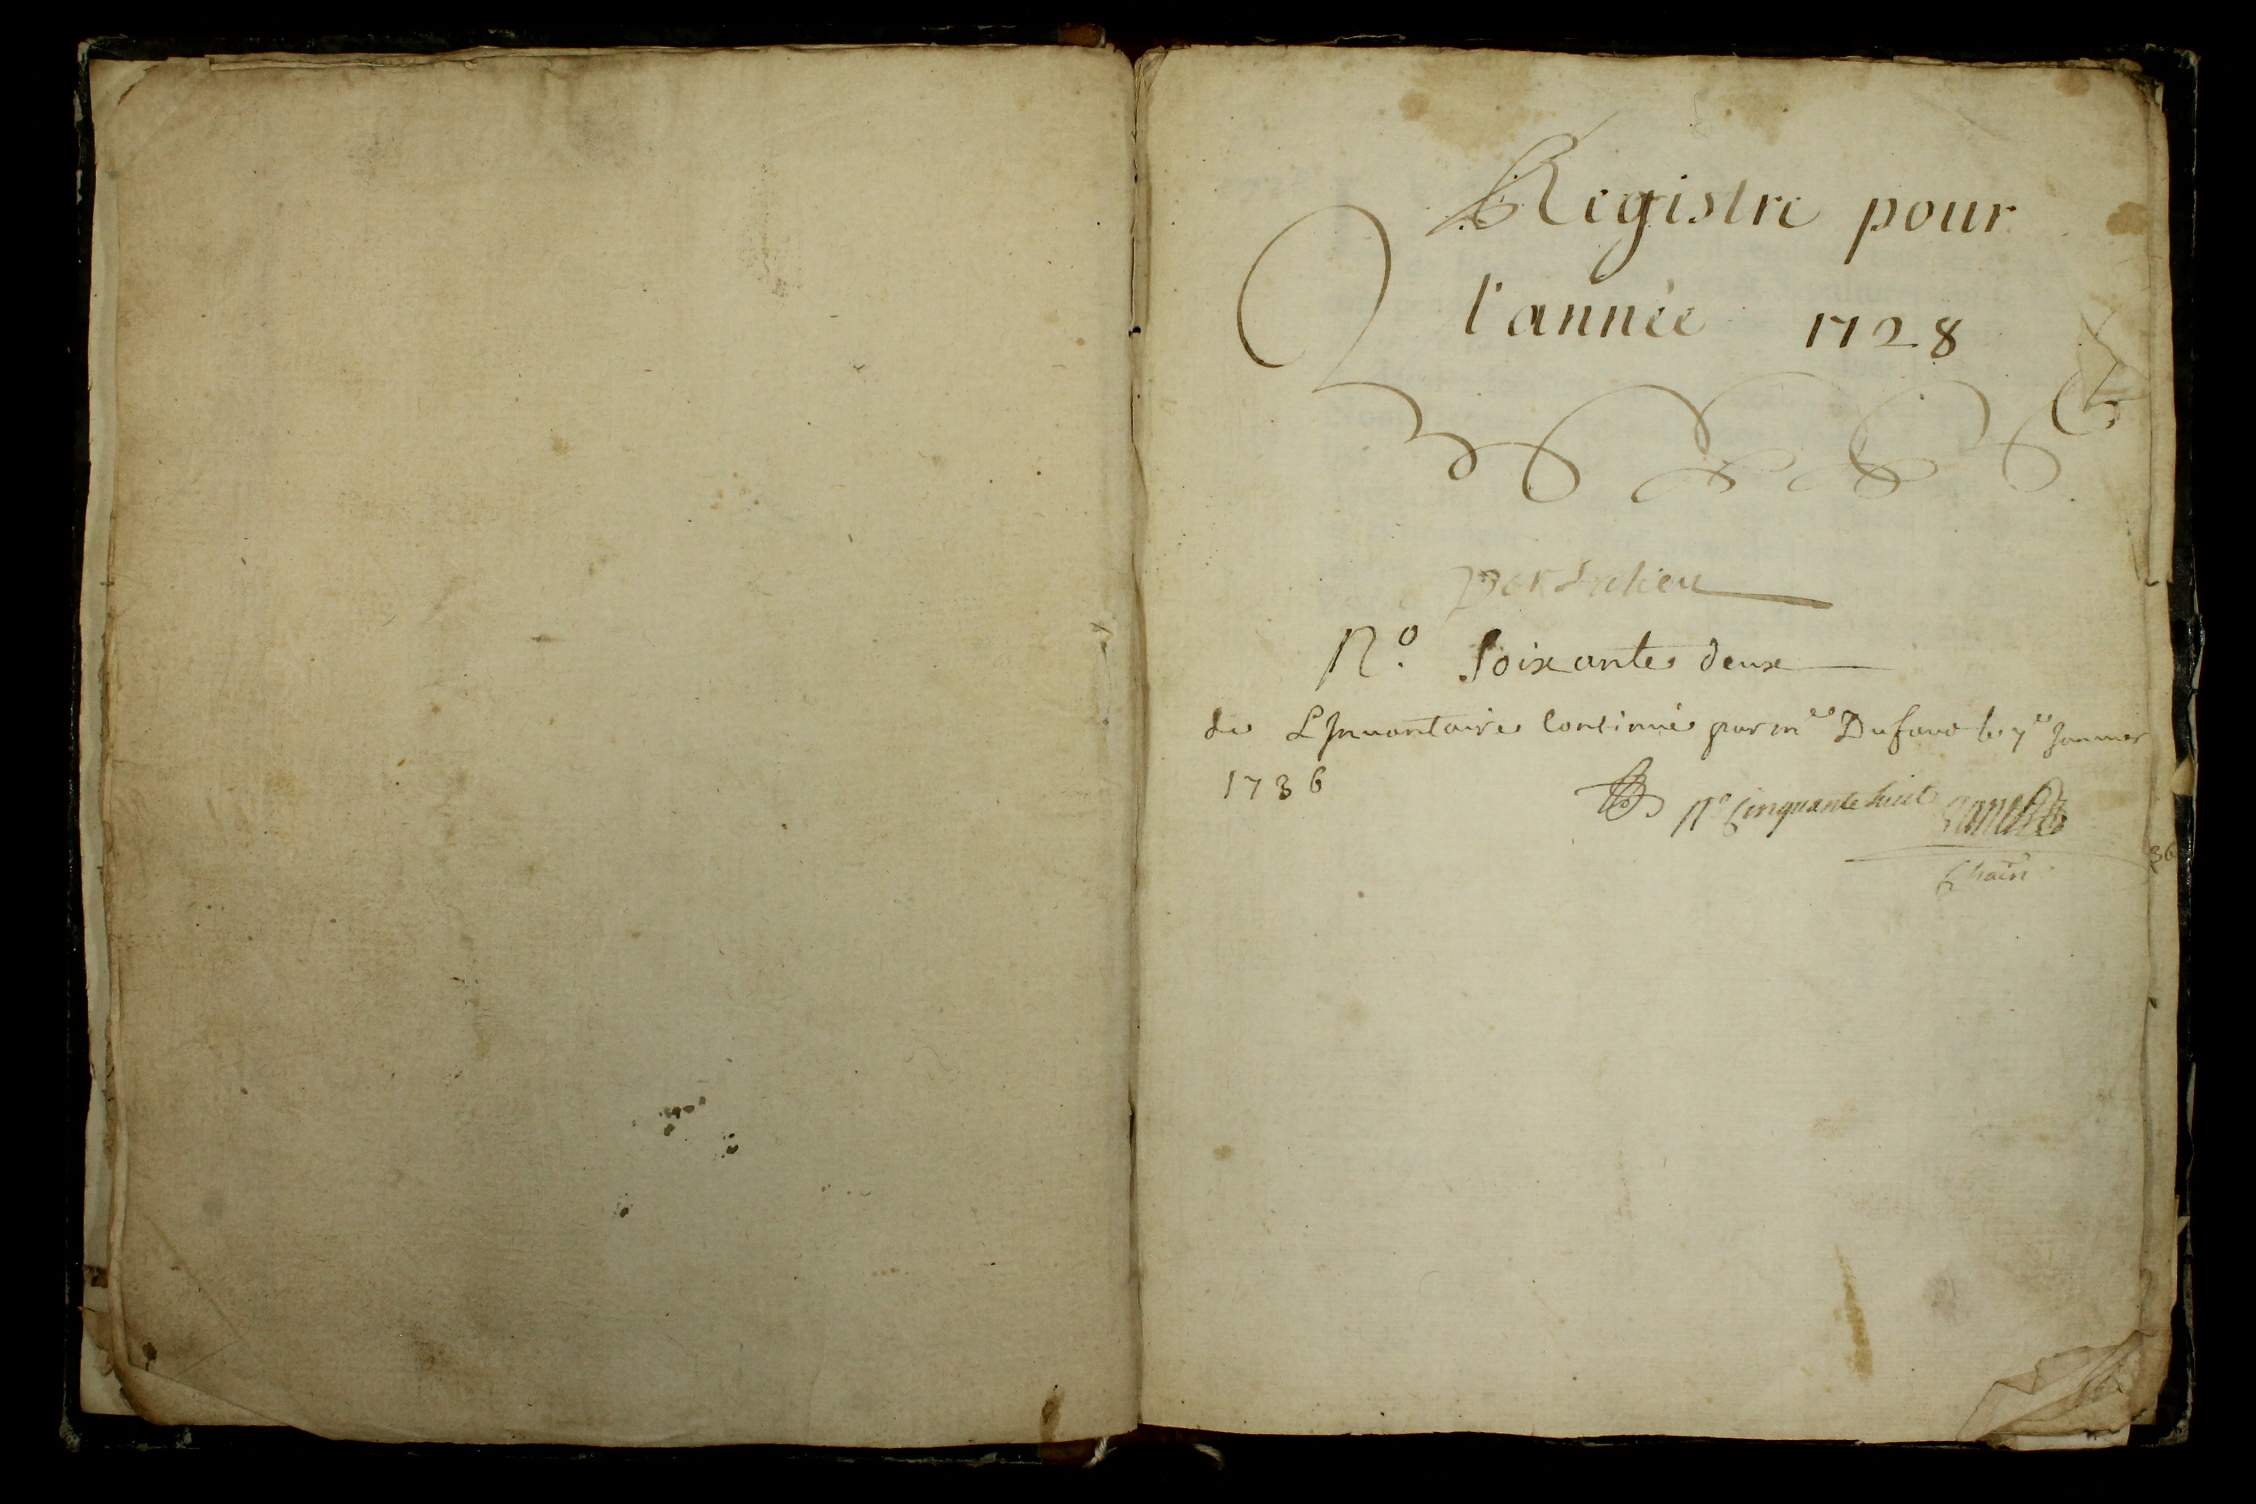 Registre pour
l'année 1728
N.º Soixante deux
de L'Inuantaire Continué par mre Dufaud le 7e Januier
1736
Nº Cinquante huit
36